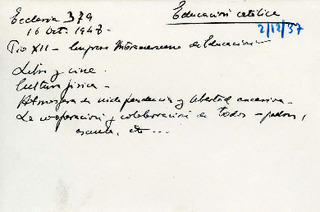 Ecclesia 379
Educación católica
16 Oct. 1948.
2/12/57
Pio XII - Congreso Interamericano de Educación
Libro y cine.
Cultura física -
Atmósfera de independencia y libertad excesiva.
La cooperación y colaboración de todos - padres,
escuela, etc ...